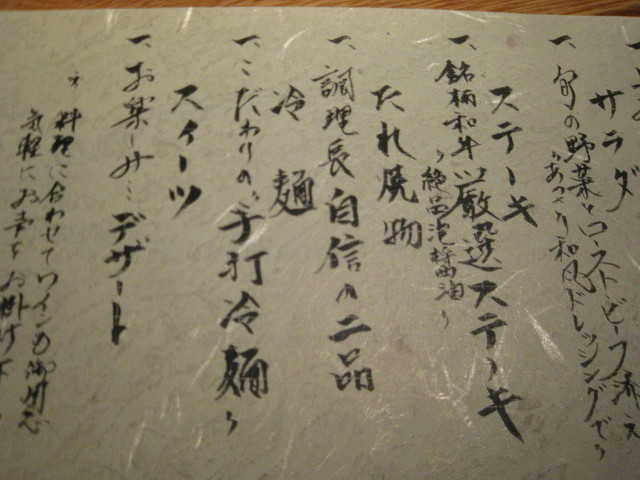 サラダ
一、旬の野菜とローストビーフ添え
〜あっさり和風ドレッシングで〜
ステーキ
一、銘柄和牛〝厳選ステーキ
〜絶品泡醤油〜
たれ焼物
一、調理長自信の二品
冷麺
一、こだわりの〝手打冷麺〟
スイーツ
一、お楽しみ…デザート
料理に合わせてワインも御用意
気軽にお声をお掛け下